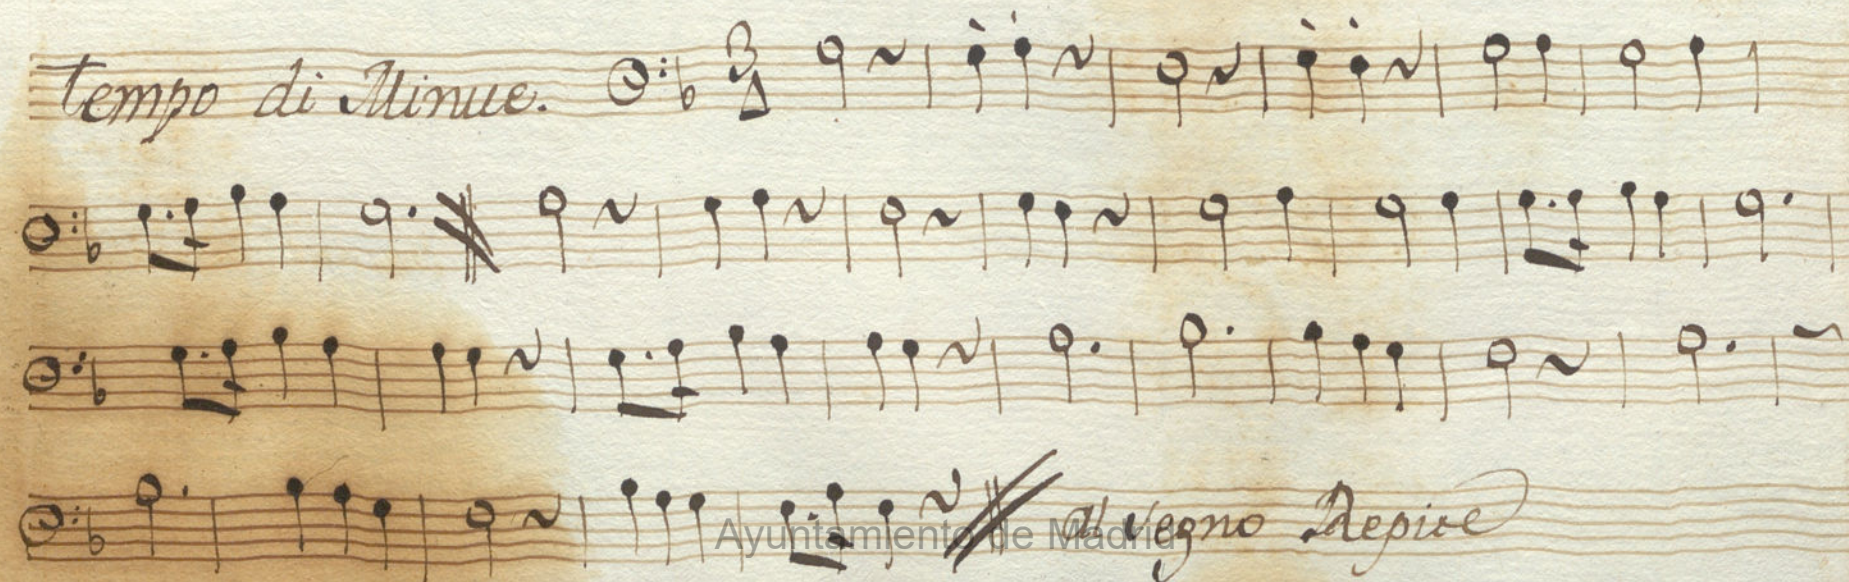 tempo di Minue.
3
4
al segno Repite
Ayuntamiento de Madrid